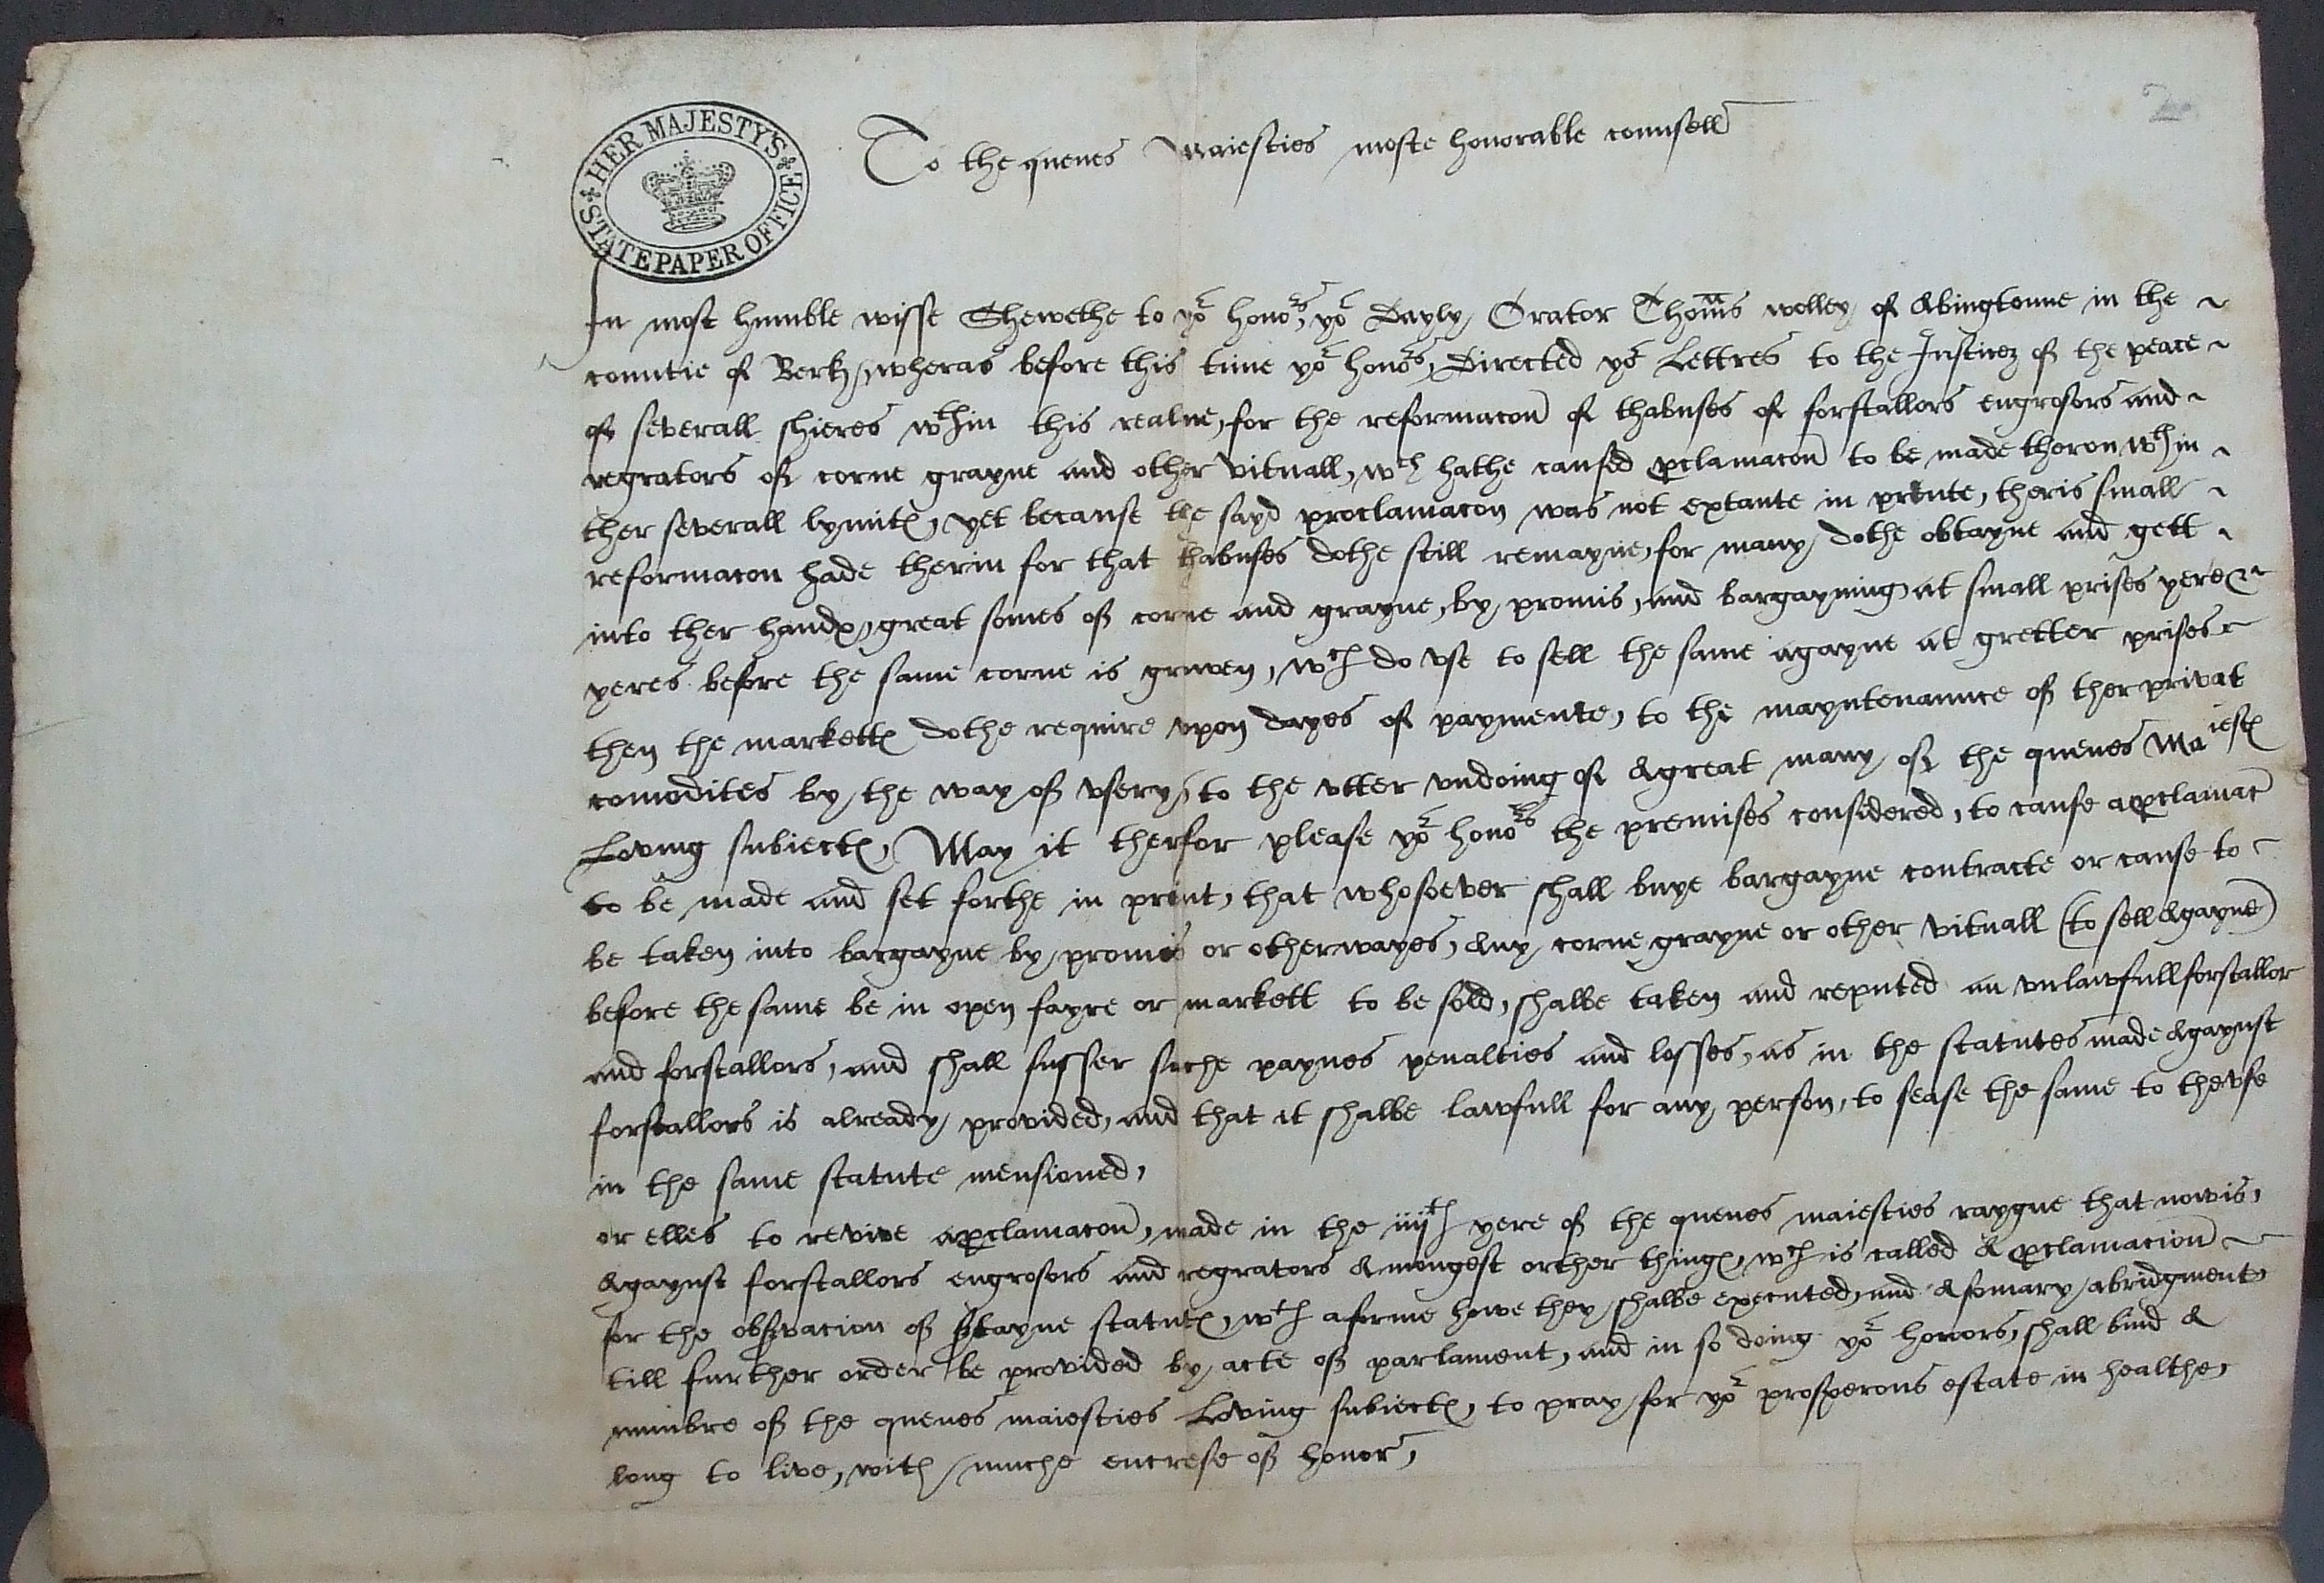 HER MAJESTY'S
STATE PAPER OFFICE
To the quenes Maiesties moste honorable counsell
In most humble wisse Shewethe to yor honors, yor Dayly Orator Thoms wolley of Abingtonne in the
countie of Berk, wheras before this time yor honors, Directed yor Lettres to the Justicez of the peace
of severall shieres wthin this realme, for the reformacon of thabuses of forstallors engrosors and
regrators of corne grayne and other vituall, wch hathe caused pclamacon to be made theron wthin
ther severall lymites, yet because the sayd proclamacon was not extante in prente, theris small
reformacon hade therin for that thabuses dothe still remayne, for many dothe obtayne and gett
into ther handes, great somes of corne and grayne, by promis, and bargayning at small prises yere &
yeres before the same corne is gruven, wch do vse to sell the same agayne at gretter prises
then the markette dothe require vpon dayes of paymente, to the mayntenaunce of ther privat
comodites by the way of vsery, to the vtter vndoing of A great many of the quenes Maiestes
Loving subiectes, May it therfor please yor honors the premises considered, to cause a pclamac
to be made and set forthe in print, that whosoever shall buye bargayne contracte or cause to
be taken into bargayne by promis or otherwayes, Any corne grayne or other vituall (to sell Agayne)
before the same be in open fayre or markett to be sold, shalbe taken and reputed an vnlawfull forstallor
and forstallors, and shall suffer suche paynes penalties and losses, as in the statutes made Agaynst
forstallors is already provided, and that it shalbe lawfull for any person, to sease the same to thevse
in the same statute mensioned,
or elles to revive a pclamacon, made in the iiijth yere of the quenes maiesties raygne that nowis,
Agaynst forstallors engrosors and regrators Amongest orther thinges, wch is called A pclamacion
for the obsvacion of stayne statutes, wth a forme howe they shalbe executed, and A somary abridgment
till further order be provided by acte of parlament, and in so doing yor honors, shall bind A
numbre of the quenes maiesties Loving subiectes, to pray for yor prosperous estate in healthe,
long to live, with muche encrese of honor,